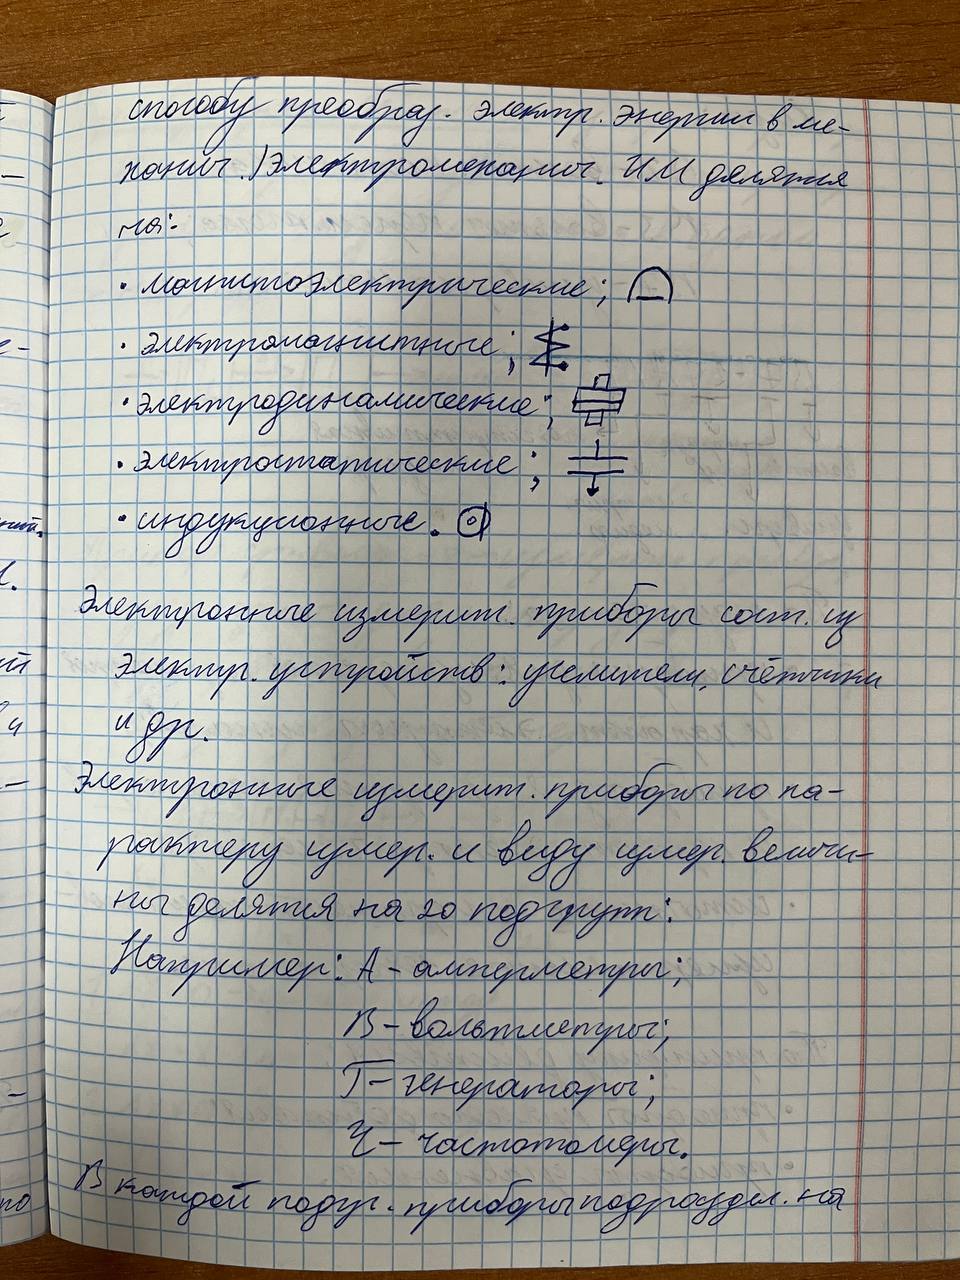 способу преобраз. электр. энергии в ме-
ханич.) электромеханич. ИМ делятся
на:
• магнитоэлектрические;
• электромагнитные;
• электродинамические;
• электростатические;
• индукционные.
Электронные измерит. приборы сост. из
электр. устройств: усилители, счётчики
и др.
Электронные измерит. приборы по ха-
рактеру измер. и виду измер. величи-
ны делятся на 20 подгрупп:
Например: А – амперметры;
В – вольтметры;
Г – генераторы;
Ч – частотомеры.
В каждой подгр. приборы подраздел. на